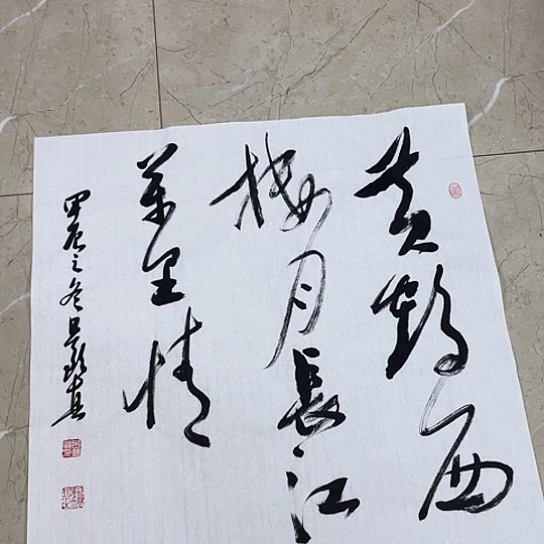 黄鹤西
楼月长江
万里情
甲辰之冬